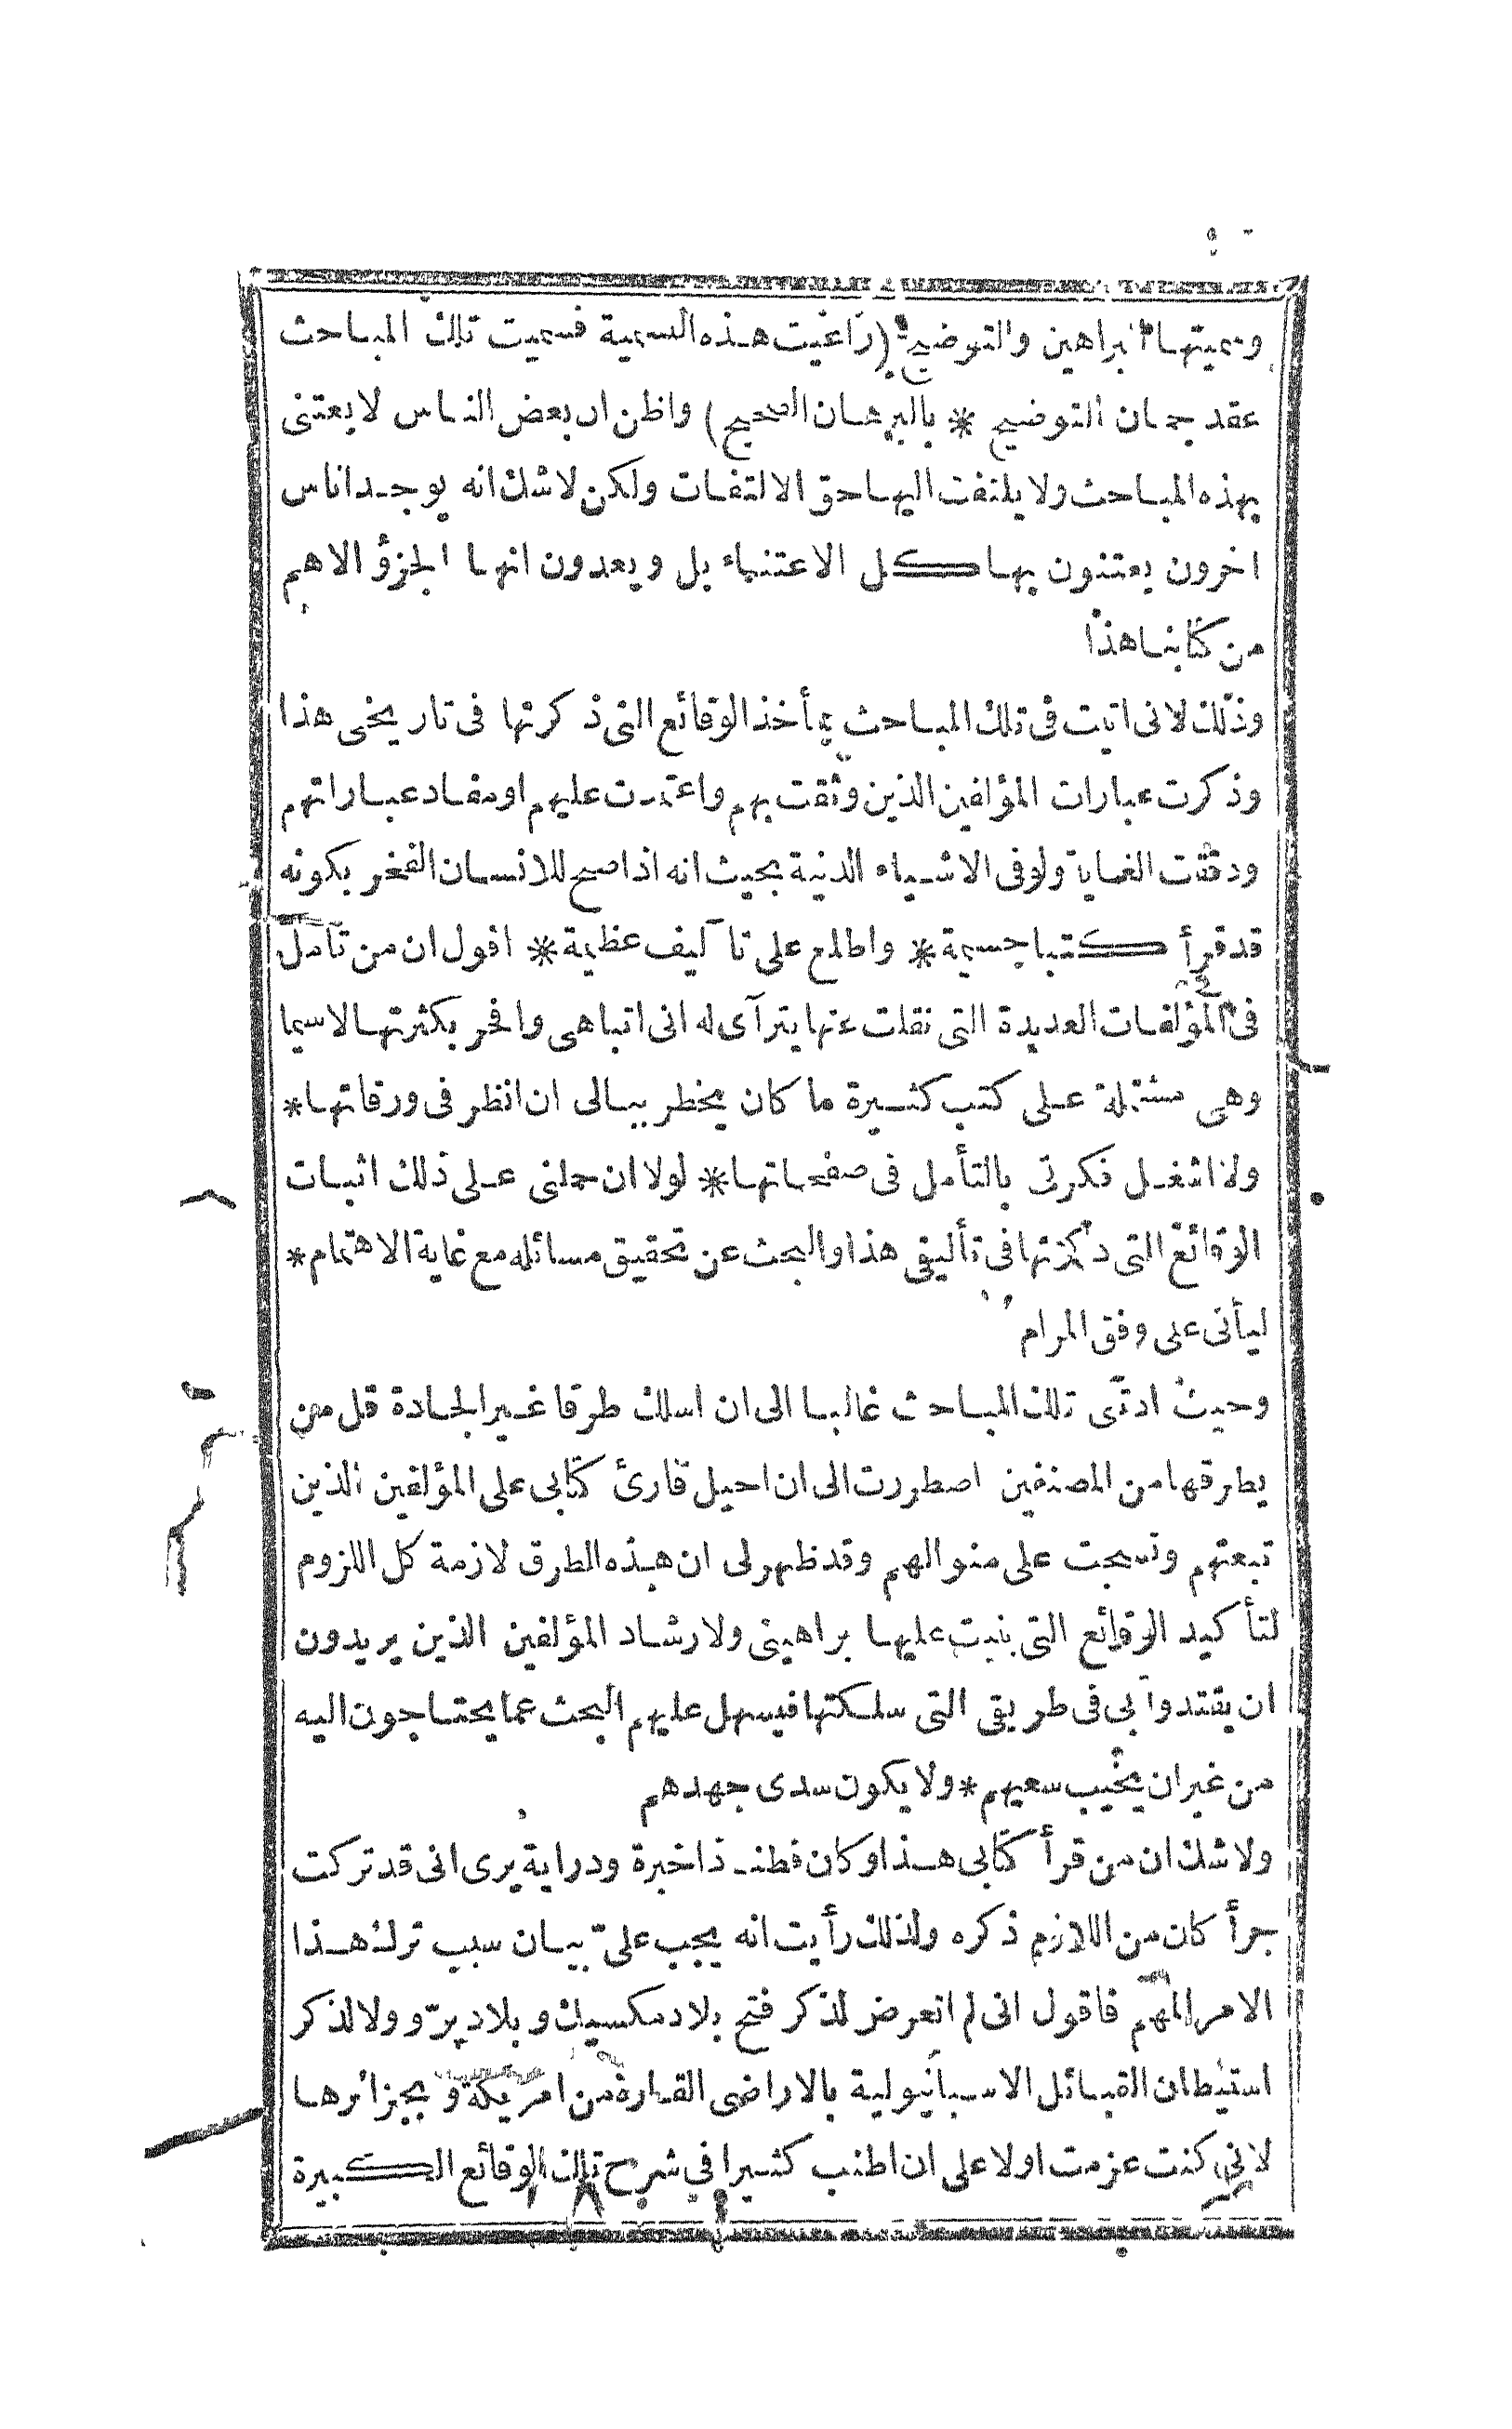 وسميتها البراهين والتوضيح (راغيت هذه التسمية فسميت تلك المباحث
عقد جمان التوضيح * بالبرهان الصحيح) واظن ان بعض الناس لا يعتنى
بهذه المباحث ولا يلتفت اليها حق الالتفات ولكن لا شك انه يوجد اناس
اخرون يعتنون بها كل الاعتناء بل ويعدون انها الجزؤ الاهم
من كتابنا هذا
وذلك لانى اتيت فى تلك المباحث بمأخذ الوقائع التى ذكرتها فى تاريخى هذا
وذكرت عبارات المؤلفين الذين وثقت بهم واعتمدت عليهم او مفاد عباراتهم
ودققت الغاية ولو فى الاشياء الدنية بحيث انه اذا صح للانسان الفخر بكونه
قد قرأ كتبا جسيمة * واطلع على تآليف عظيمة * اقول ان من تامل
فى المؤلفات العديدة التى نقلت عنها يترآى له انى اتباهى وافخر بكثرتها لاسيما
وهى مشتملة على كتب كثيرة ما كان يخطر ببالى ان انظر فى ورقاتها *
ولا اشغل فكرتى بالتأمل فى صفحاتها * لولا ان حملنى على ذلك اثبات
الوقائع التى ذكرتها فى تأليفى هذا والبحث عن تحقيق مسائله مع غاية الاهتمام *
ليأتى على وفق المرام
وحيث ادتنى تلك المباحث غالبا الى ان اسلك طرقا غير الجادة قل من
يطرقها من المصنفين اضطررت الى ان احيل قارئ كتابى على المؤلفين الذين
تبعتهم ونسجت على منوالهم وقد ظهر لى ان هذه الطرق لازمة كل اللزوم
لتأكيد الوقائع التى بنيت عليها براهينى ولارشاد المؤلفين الذين يريدون
ان يقتدوا بى فى طريقى التى سلكتها فيسهل عليهم البحث عما يحتاجون اليه
من غير ان يخيب سعيهم * ولا يكون سدى جهدهم
ولا شك ان من قرأ كتابى هذا وكان فطنا ذا خبرة ودراية يرى انى قد تركت
جزأ كان من اللازم ذكره ولذلك رأيت انه يجب علىّ بيان سبب ترك هذا
الامر المهم فاقول انى لم اتعرض لذكر فتح بلاد مكسيك وبلاد پرّو ولا لذكر
استيطان القبائل الاسبانيولية بالاراضى القارة من امريكة وبجزائرها
لانى كنت عزمت اولا على ان اطنب كثيرا فى شرح تلك الوقائع الكبيرة